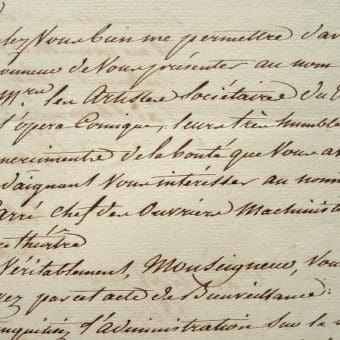 Vous bien me permettre d'av
onneur de Vous présenter au nom
M.rs les Artistes Sociétaires du
l'opera Comique, leurs très humble
ercimente de la bonté que Vous a
daignant Vous intéresser au nomm
Carré chef des Ouvriers Machinist
ce théâtre
Véritablement, Monseigneur, Vou
rez par cet acte de Bienveillance
d'Administration sur la